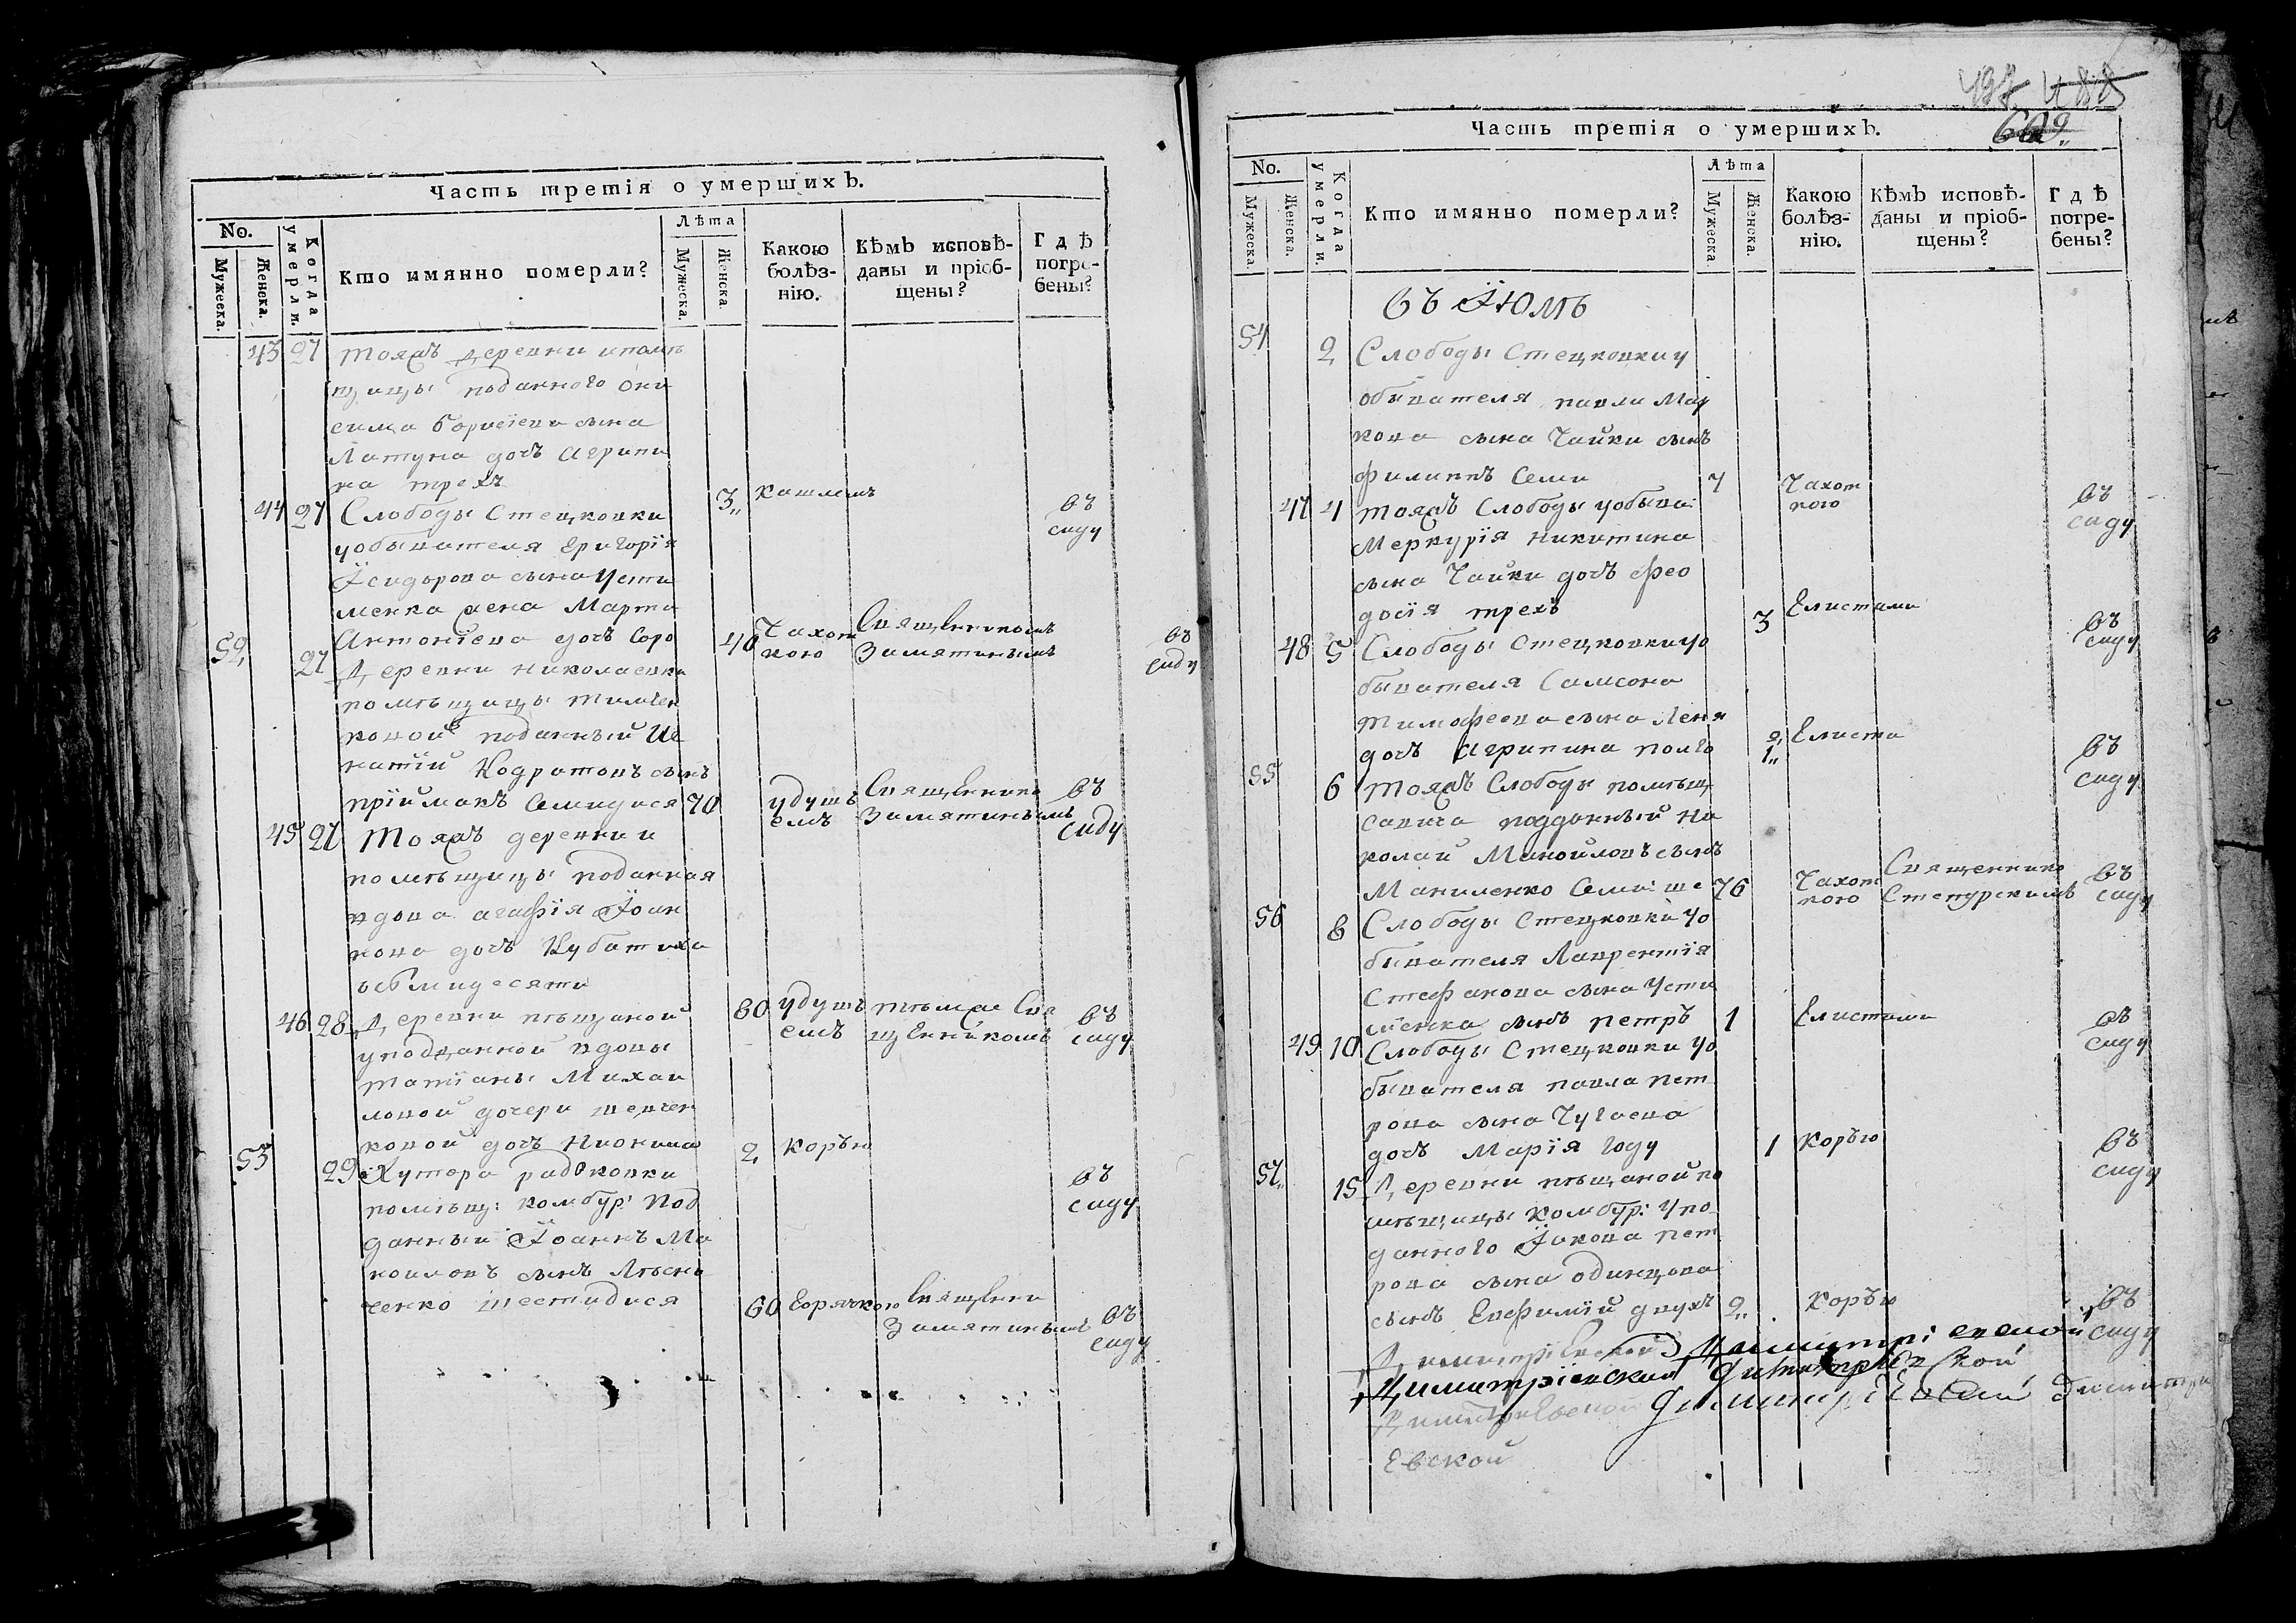 Часть третія о умершихъ.
No.
Мужеска.
Женска.
Когда умерли.
Кто имянно померли?
Лѣта
Мужеска.
Женска.
Какою болѣз-
нію.
Кѣмъ исповѣ-
даны и пріоб-
щены?
Гдѣ
погре-
бены?
43 27 тояжъ деревни и помѣ
щицы поданного Они
сима Борисіева сына
Латуна дочь Агрипи
на трехъ 3 кашлемъ въ саду
44 27 Слободы Стецковки
у обывателя Григорїя
Їсидорова сына Усти
менка жена Марта
Антонїева дочь Соро 40 Чахот кою Священникомъ Замятинымъ въ саду
52 27 Деревни Николаевки
помѣщицы Тимчен
ковой поданный Иг
натїй Кодратовъ сынъ
прїймакъ Семидися 70 удушъ емъ Священнико Замятинымъ въ саду
45 27 Тояжъ деревни и
помѣщицы поданная
вдова Агафїя Їоан
нова дочь Кубатиха
восьмидесяти 80 удушъ емъ тѣмже Свя щенникомъ въ саду
46 28 Деревни пѣщаной
у подданной вдовы
Татїаны Михаи
ловой дочери Шевчен
ковой дочь Нионила 2 корью въ саду
53 29 Хутора радковки
помѣщ: комбур: Под
данный Їоаннъ Ма
ноиловъ сынъ Лѣсни
ченко шестидися 60 Горячкою Священни Замятинымъ въ саду
498 488
609
Часть третія о умершихъ.
No.
Мужеска.
Женска.
Когда умерли.
Кто имянно померли?
Лѣта
Мужеска.
Женска.
Какою
болѣз-
нію.
Кѣмъ исповѣ-
даны и пріоб-
щены?
Гдѣ
погре-
бены?
Въ Їюлѣ
54 2 Слободы Стецковки у
обывателя павла Мар
кова сына Чайки сынъ
филиппъ Семи 7 Чахот кою въ саду
47 4 тояжъ Слободы у обыва:
Меркурїя никитина
сына Чайки дочь Фео
досїя трехъ 3 Глистами въ саду
48 5 Слободы Стецковки у о
бывателя Самсона
тимофеева сына Леня
дочь Агрипина полго 1/2 Глиста въ саду
55 6 тояжъ Слободы помѣщ
Савича подданный Ни
колай Манойловъ сынъ
Маниленко Семи: ше 76 Чахот кою Священнико Степурскимъ въ саду
56 8 Слободы Стецковки у о
бывателя Лаврентїя
Стефанова сына Усти
менка сынъ петръ 1 Глистами въ саду
49 10 Слободы Стецковки у о
бывателя павла пет
рова сына Чугаева
дочь Марїя году 1 корью въ саду
57 15 Деревни пѣщаной по
мѣщицы Комбур: у по
данного Їакова пет
рова сына одинцова
сынъ Евфимїй двухъ 2 корью въ саду
Димитрїевской Димитрїевской
Димитрїевской Димитрїевской
Димитриевской Димитрїевской Димитри
евской